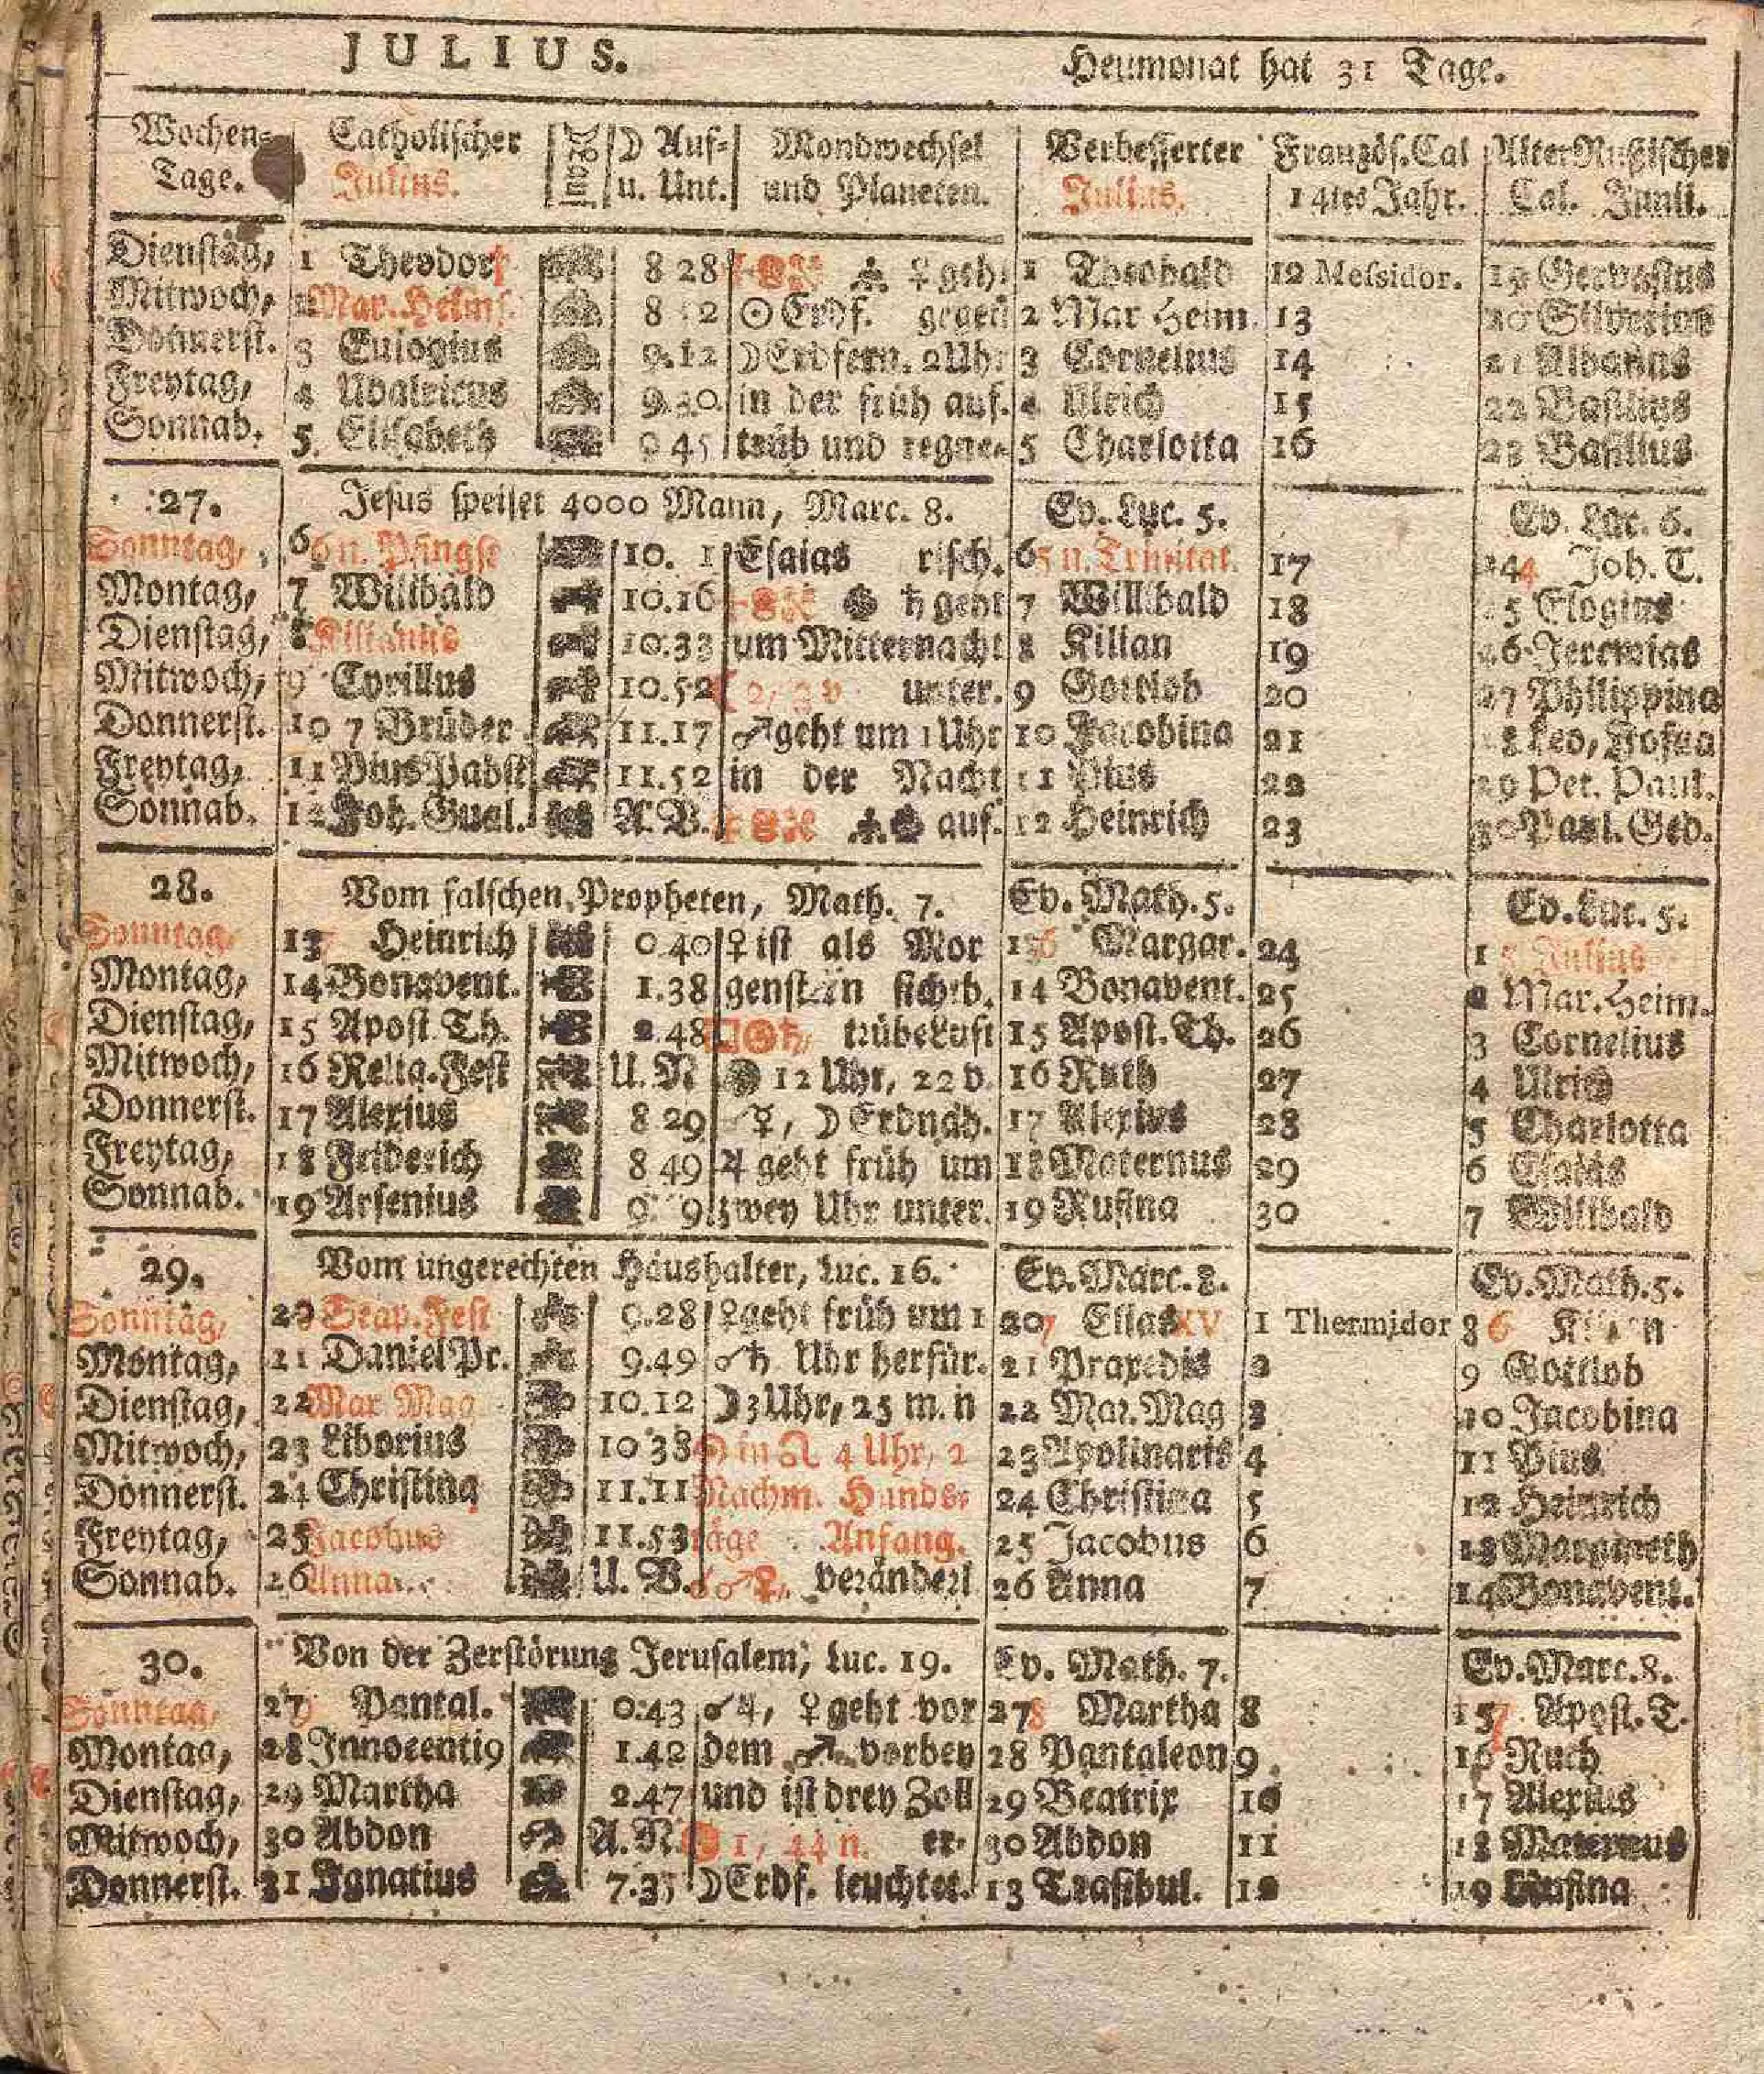 JULIUS. Heumonat hat 31 Tage.
Wochen- Catholischer ☽ Auf- Mondwechsel Verbesserter Französ. Cal Alter Rußischer
Tage. Julius. u. Unt. und Planeten. Julius. 14tes Jahr. Cal. Junii.
Dienstag, 1 Theodor 8 28 ♀ geht 1 Theobald 12 Messidor. 19 Gervasius
Mittwoch, Mar. Heims. 8 ☉ Erdf. gegen 2 Mar Heim. 13 20 Silverius
Donnerst. 3 Eulogius 9.12 ☽ Erdfern. 2 Uhr 3 Cornelius 14 21 Albanus
Freytag, 4 Udalricus 9.30 in der früh auf. 4 Ulrich 15 22
Sonnab. 5. Elisabeth 9 45 trüb und regne- 5 Charlotta 16 23 Basilius
27. Jesus speiset 4000 Mann, Marc. 8. Ev. Luc. 5. Ev. Luc. 6.
Sonntag, 6 6 n. Pfingst 10. 1 Esaias risch. 6 5 n. Trinitat. 17 24 4 Joh. T.
Montag, 7 Willibald 10.16 ♄ geht 7 Willibald 18 25 Elogius
Dienstag, 8 Kilianus 10.33 um Mitternacht 8 Kilian 19 26 Jeremias
Mittwoch, 9 Cyrillus 10.52 unter. 9 Gottlob 20 27 Philippina
Donnerst. 10 7 Brüder 11.17 ♂ geht um 1 Uhr 10 Jacobina 21 28 Leo, Josua
Freytag, 11 Pius Pabst 11.52 in der Nacht 11 Pius 22 29 Pet. Paul.
Sonnab. 12 Joh. Gual. A. V. auf. 12 Heinrich 23 30 Paul. Ged.
28. Vom falschen Propheten, Math. 7. Ev. Math. 5. Ev. Luc. 5.
Sonntag 13 7 Heinrich 0.40 ♀ ist als Mor 13 6 Margar. 24 1 5 Julius
Montag, 14 Bonavent. 1.38 genstern sichtb. 14 Bonavent. 25 2 Mar. Heim.
Dienstag, 15 Apost. Th. 2.48 trübe Luft 15 Apost. Th. 26 3 Cornelius
Mittwoch, 16 Reliq. Fest U. N 12 Uhr, 22 v. 16 Ruth 27 4 Ulrich
Donnerst. 17 Alexius 8 29 ☿, ☽ Erdnäh. 17 Alexius 28 5 Charlotta
Freytag, 18 Friderich 8 49 ♃ geht früh um 18 Maternus 29 6 Esaias
Sonnab. 19 Arsenius 9. 9 zwey Uhr unter. 19 Rufina 30 7 Willibald
29. Vom ungerechten Haushalter, Luc. 16. Ev. Marc. 8. Ev. Math. 5.
Sonntag, 20 Scap. Fest 9.28 ♀ geht früh um 1 20 7 Elias XV 1 Thermidor 8 6
Montag, 21 Daniel Pr. 9.49 ☌ ♄ Uhr herfür. 21 Praxedis 2 9 Gottlob
Dienstag, 22 Mar Mag 10.12 ☽ 3 Uhr, 25 m. n 22 Mar. Mag 3 10 Jacobina
Mittwoch, 23 Liborius 10 38 ☉ in ♌ 4 Uhr, 2 23 Apolinaris 4 11 Pius
Donnerst. 24 Christina 11.11 Nachm. Hunds- 24 Christina 5 12 Heinrich
Freytag, 25 Jacobus 11.53 täge Anfang. 25 Jacobus 6 13 Margareth
Sonnab. 26 Anna U. V. ☌ ♂ ♀, veränderl 26 Anna 7 14 Bonavent.
30. Von der Zerstörung Jerusalem, Luc. 19. Ev. Math. 7. Ev. Marc. 8.
Sonntag, 27 9 Pantal. 0.43 ☌ ♃, ♀ geht vor 27 8 Martha 8 15 7 Apost. T.
Montag, 28 Innocenti9 1.42 dem ♂ vorbey 28 Pantaleon 9 16 Ruth
Dienstag, 29 Martha 2.47 und ist drey Zoll 29 Beatrix 10 17 Alexius
Mittwoch, 30 Abdon A. N. 1, 44 n. er- 30 Abdon 11 18 Maternus
Donnerst. 31 Ignatius 7.35 ☽ Erdf. leuchtet. 13 Trasibul. 12 19 Rufina